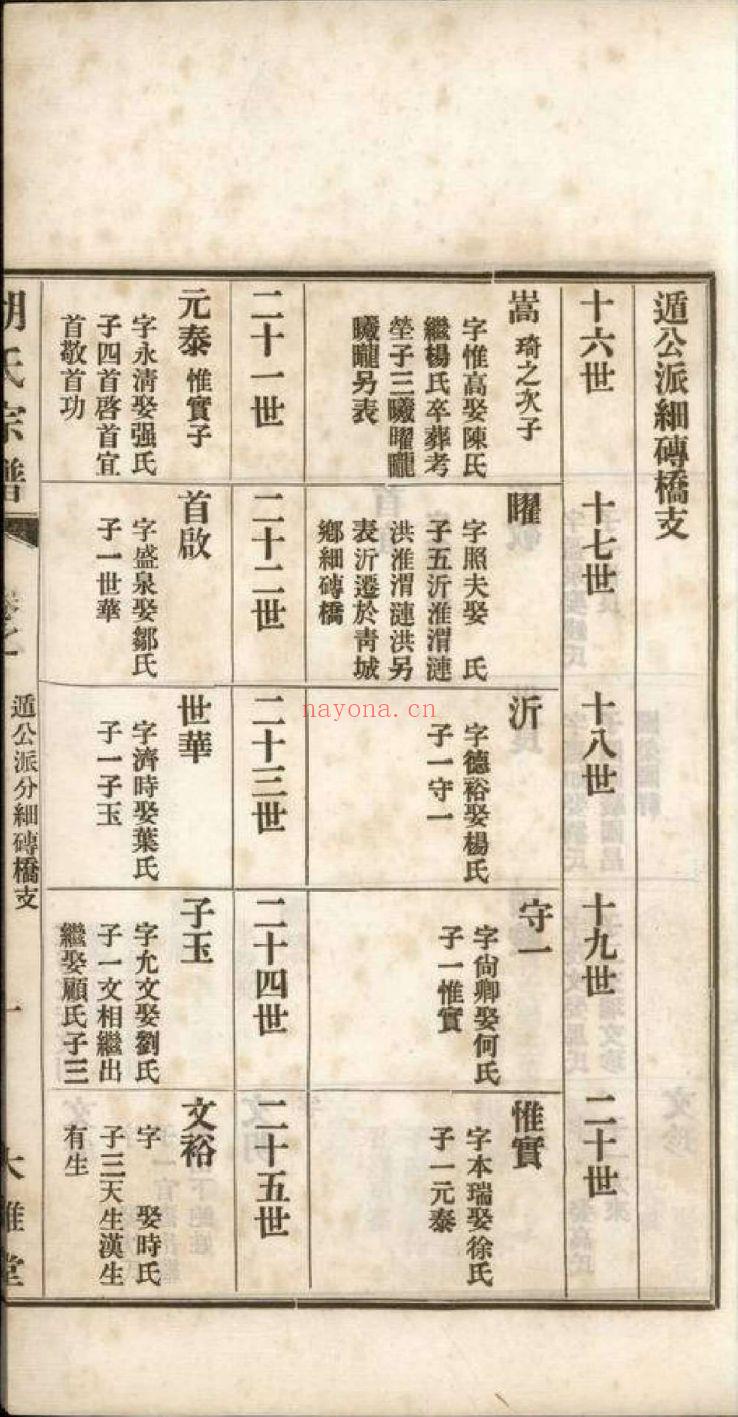 遁公派細磚橋支
十六世
十七世
十八世
十九世
二十世
嵩 琦之次子
字惟高娶陳氏
繼楊氏卒葬考
塋子三曦曜曨
曦曨另表
曜
字照夫娶 氏
子五沂淮渭漣
洪淮渭漣洪另
表沂遷於靑城
鄉細磚橋
沂
字德裕娶楊氏
子一守一
守一
字尙卿娶何氏
子一惟實
惟實
字本瑞娶徐氏
子一元泰
二十一世
二十二世
二十三世
二十四世
二十五世
元泰 惟實子
字永淸娶强氏
子四首啓首宜
首敬首功
首啟
字盛泉娶鄒氏
子一世華
世華
字濟時娶葉氏
子一子玉
子玉
字允文娶劉氏
子一文相繼出
繼娶顧氏子三
文裕
字 娶時氏
子三天生漢生
有生
胡氏宗譜
卷之
遁公派分細磚橋支
一
大雅堂
nayona.cn